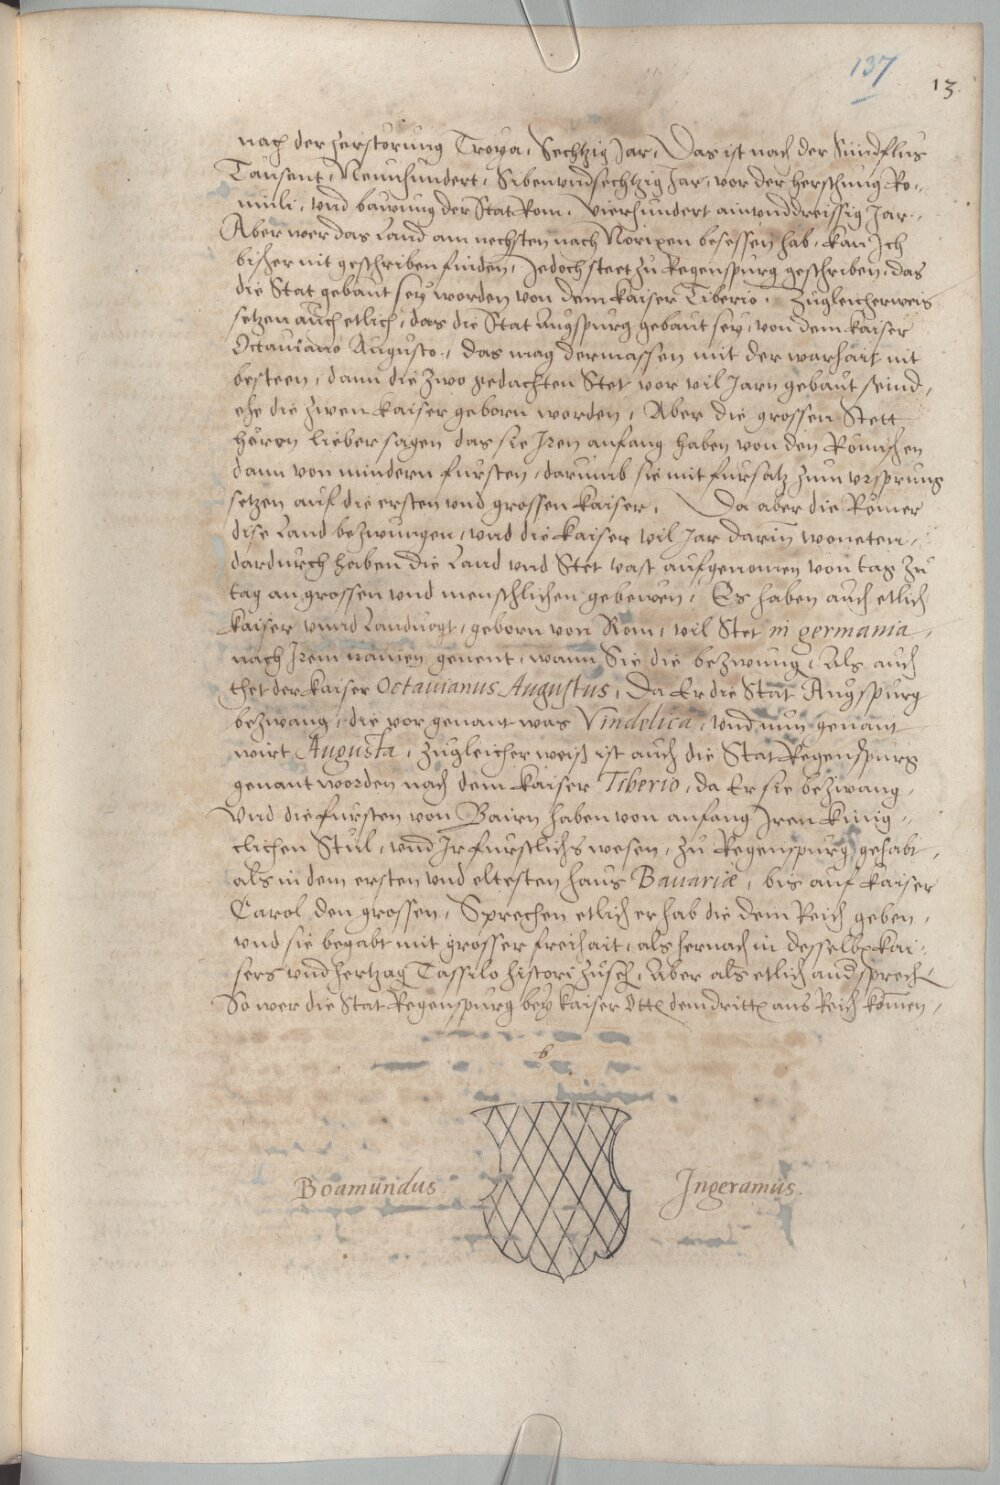 137
13.
nach der zerstörung Troya, Sechtzig Jar, Das ist nach der Sündflus
Tausent, Neunhundert, Sibenvndsechtzig Jar, vor der herschung Ro-
muli, vnd bawung der Stat Rom, vierhundert ainvnddreissig Jar.
Aber wer das Land am nechsten nach Norixen besessen hab, kan Jch
bißher nit geschriben finden, Jedoch steet zu Regenspurg geschriben, das
die Stat gebaut sey worden von dem kaiser Tiberio. Zugleicherweis
setzen auch etlich, das die Stat Augspurg gebaut sey, von dem kaiser
Octauiano Augusto, das mag dermassen mit der warhait nit
besteen, dann die zwo gedachten Stet vor vil Jarn gebaut seind,
ehe die zwen kaiser geborn worden, Aber die grossen Stett
hören lieber sagen das sie Jren anfang haben von den Römischen
dann von mindern fursten, darumb sie mit fursatz zum vrsprung
setzen auf die ersten vnd grossen kaiser, Da aber die Römer
dise Land bezwungen, vnd die kaiser vil Jar darin̄ woneten,
dardurch haben die Land vnd Stet vast aufgenomen von tag zu
tag an grossen vnd menschlichen gebewen, Es haben auch etlich
kaiser vnnd Landuogt, geborn von Rom, vil Stet in germania,
nach Jrem namen genent, wann Sie die bezwung, Als auch
thet der kaiser Octauianus Augustus, Da Er die Stat Augspurg
bezwang, die vor genant was Vindelica, vnd nun genant
wirt Augusta, Zugleicher weiß ist auch die Stat Regenspurg
genant worden nach dem kaiser Tiberio, da Er sie bezwang,
Vnd die fursten von Bairn haben von anfang Jren künig-
clichen Stul, vnd Jr furstlichs wesen, zu Regenspurg gehabt,
als in dem ersten vnd eltesten haus Bauariæ, bis auf kaiser
Carol den grossen, Sprechen etlich er hab die dem Reich geben,
vnd sie begabt mit grosser freihait, als hernach in desselbn kai-
sers vnd hertzog Tassilo histori
Aber als etlich
So wer die Stat Regenspurg bey kaiser Otto dem dritten ans Reich komen,
b
Boamundus.
Jngeramus.